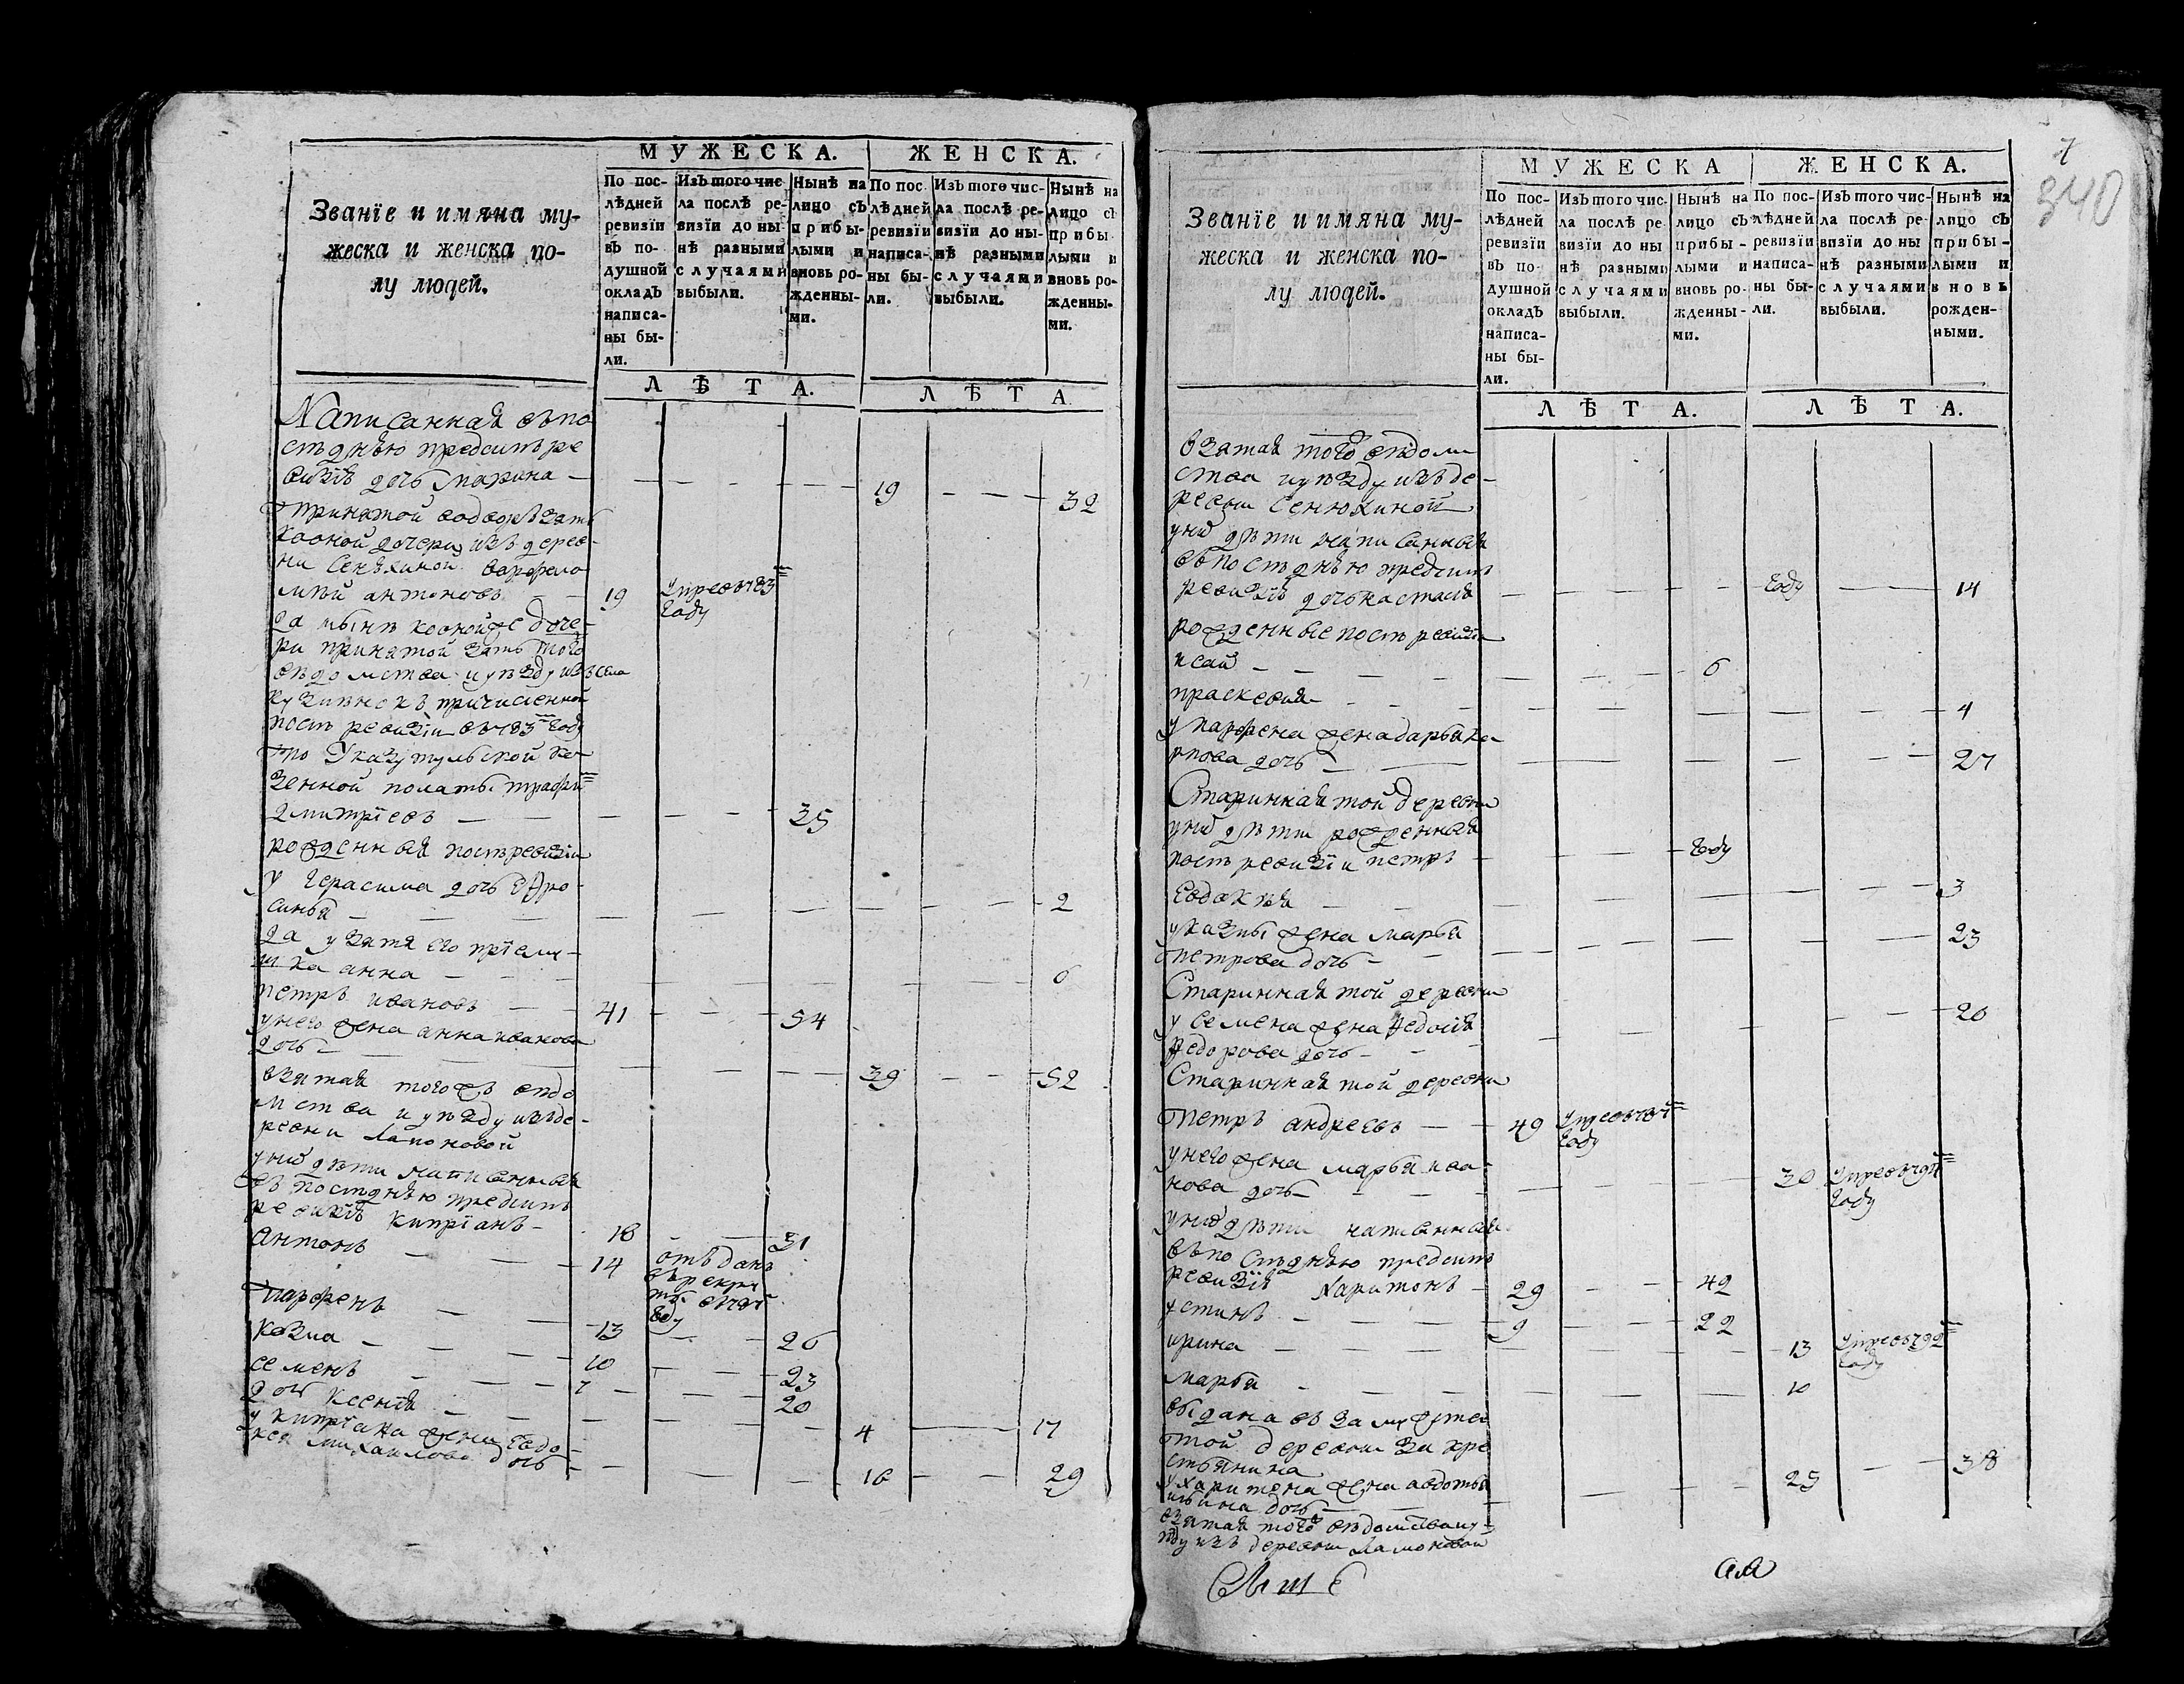 МУЖЕСКА.
ЖЕНСКА.
Званїе и имяна му-
жеска и женска по-
лу людей.
По пос-
лѣдней
ревизїи
въ по-
душной
окладъ
написа-
ны бы-
ли.
Изъ того чис
ла послѣ ре-
визїи до ны-
нѣ разными
случаями
выбыли.
Нынѣ на
лицо съ
прибы-
лыми и
вновь ро-
жденны-
ми.
По пос
лѣдней
ревизїи
написа-
ны бы-
ли.
Изъ того чис-
ла послѣ ре-
визїи до ны-
нѣ разными
случаями
выбыли.
Нынѣ на
лицо съ
прибы
лыми и
вновь ро-
жденны-
ми.
ЛѢТА.
ЛѢТА
Написанная въ по
слѣднѣю предсимъ ре
визїѣ дочь марина 19 32
принятой во дворъ зять
ко оной дочери изъ дерев-
ни Сенюхиной варфоло
мѣй антоновъ 19 умре в 783
году
да нынѣ ко оной же доче-
ри принятой зять того
вѣдомства и уѣзду изъ села
причисленной
послѣ ревизїи в 783 году
по указу тульской ка-
зенной полаты трофи
дмитрїевъ 35
рожденныя послѣ ревизїи
у герасима дочь Ефро-
синья 2
да у зятя его прїемы-
ш ка анна 6
петръ ивановъ 41 54
у него жена анна иванова
дочь 39 52
взятая того жъ вѣдо
мства и уѣзду изъ де-
ревни Лапоновой
у них дѣти написанныя
въ послѣднѣю предсимъ
ревизїѣ Кипрїанъ 18 31
Антонъ 14 отъданъ
въ рекру
ты в 787
году
Парфенъ 13 26
Козма 10 23
семенъ 7 20
дочь ксенїя 4 17
у кипрїана жена Евдо-
кея михаилова дочь 16 29
7
340
МУЖЕСКА
ЖЕНСКА.
Званїе и имяна му-
жеска и женска по-
лу людей.
По пос-
лѣдней
ревизїи
въ по-
душной
окладъ
написа-
ны бы-
ли.
Изъ того чис-
ла послѣ ре-
визїи до ны
нѣ разными
случаями
выбыли.
Нынѣ на
лицо съ
прибы-
лыми и
вновь ро-
жденны-
ми.
По пос-
лѣдней
ревизїи
написа-
ны бы-
ли.
Изъ того чис-
ла послѣ ре-
визїи до ны
нѣ разными
случаями
выбыли.
Нынѣ на
лицо съ
прибы-
лыми и
вновь
рожден-
ными.
ЛѢТА.
ЛѢТА.
взятая того вѣдом
ства и уѣзду изъ де-
ревни Сенюхиной
у них дѣти написанныя
въ послѣднѣю предсимъ
ревизїѣ дочь настасья году 14
рожденные послѣ ревизїи
исай 6
прасковья 4
у парфена жена дарья ка
рпова дочь 27
Старинная той деревни
у них дѣти рожденныя
послѣ ревизїи петръ году
Евдокѣя 3
у казмы жена марья
петрова дочь 23
Старинная той деревни
у семена жена федосья
федорова дочь 20
Старинная той деревни
Петръ андреевъ 49 умре в 787
году
у него жена марья ива-
нова дочь 30 умре в 791
году
у них дѣти написанныя
въ послѣднѣю предсимъ
ревизїѣ Харитонъ 29 42
устинъ 9 22
ирина 13 умре в 792
году
марья 10
выдана въ замужство
той деревни за кре
стьянина
у харитона жена авдотья
ильина дочь 25 38
взятая того вѣдомства и у-
зду изъ деревни Лапоновой